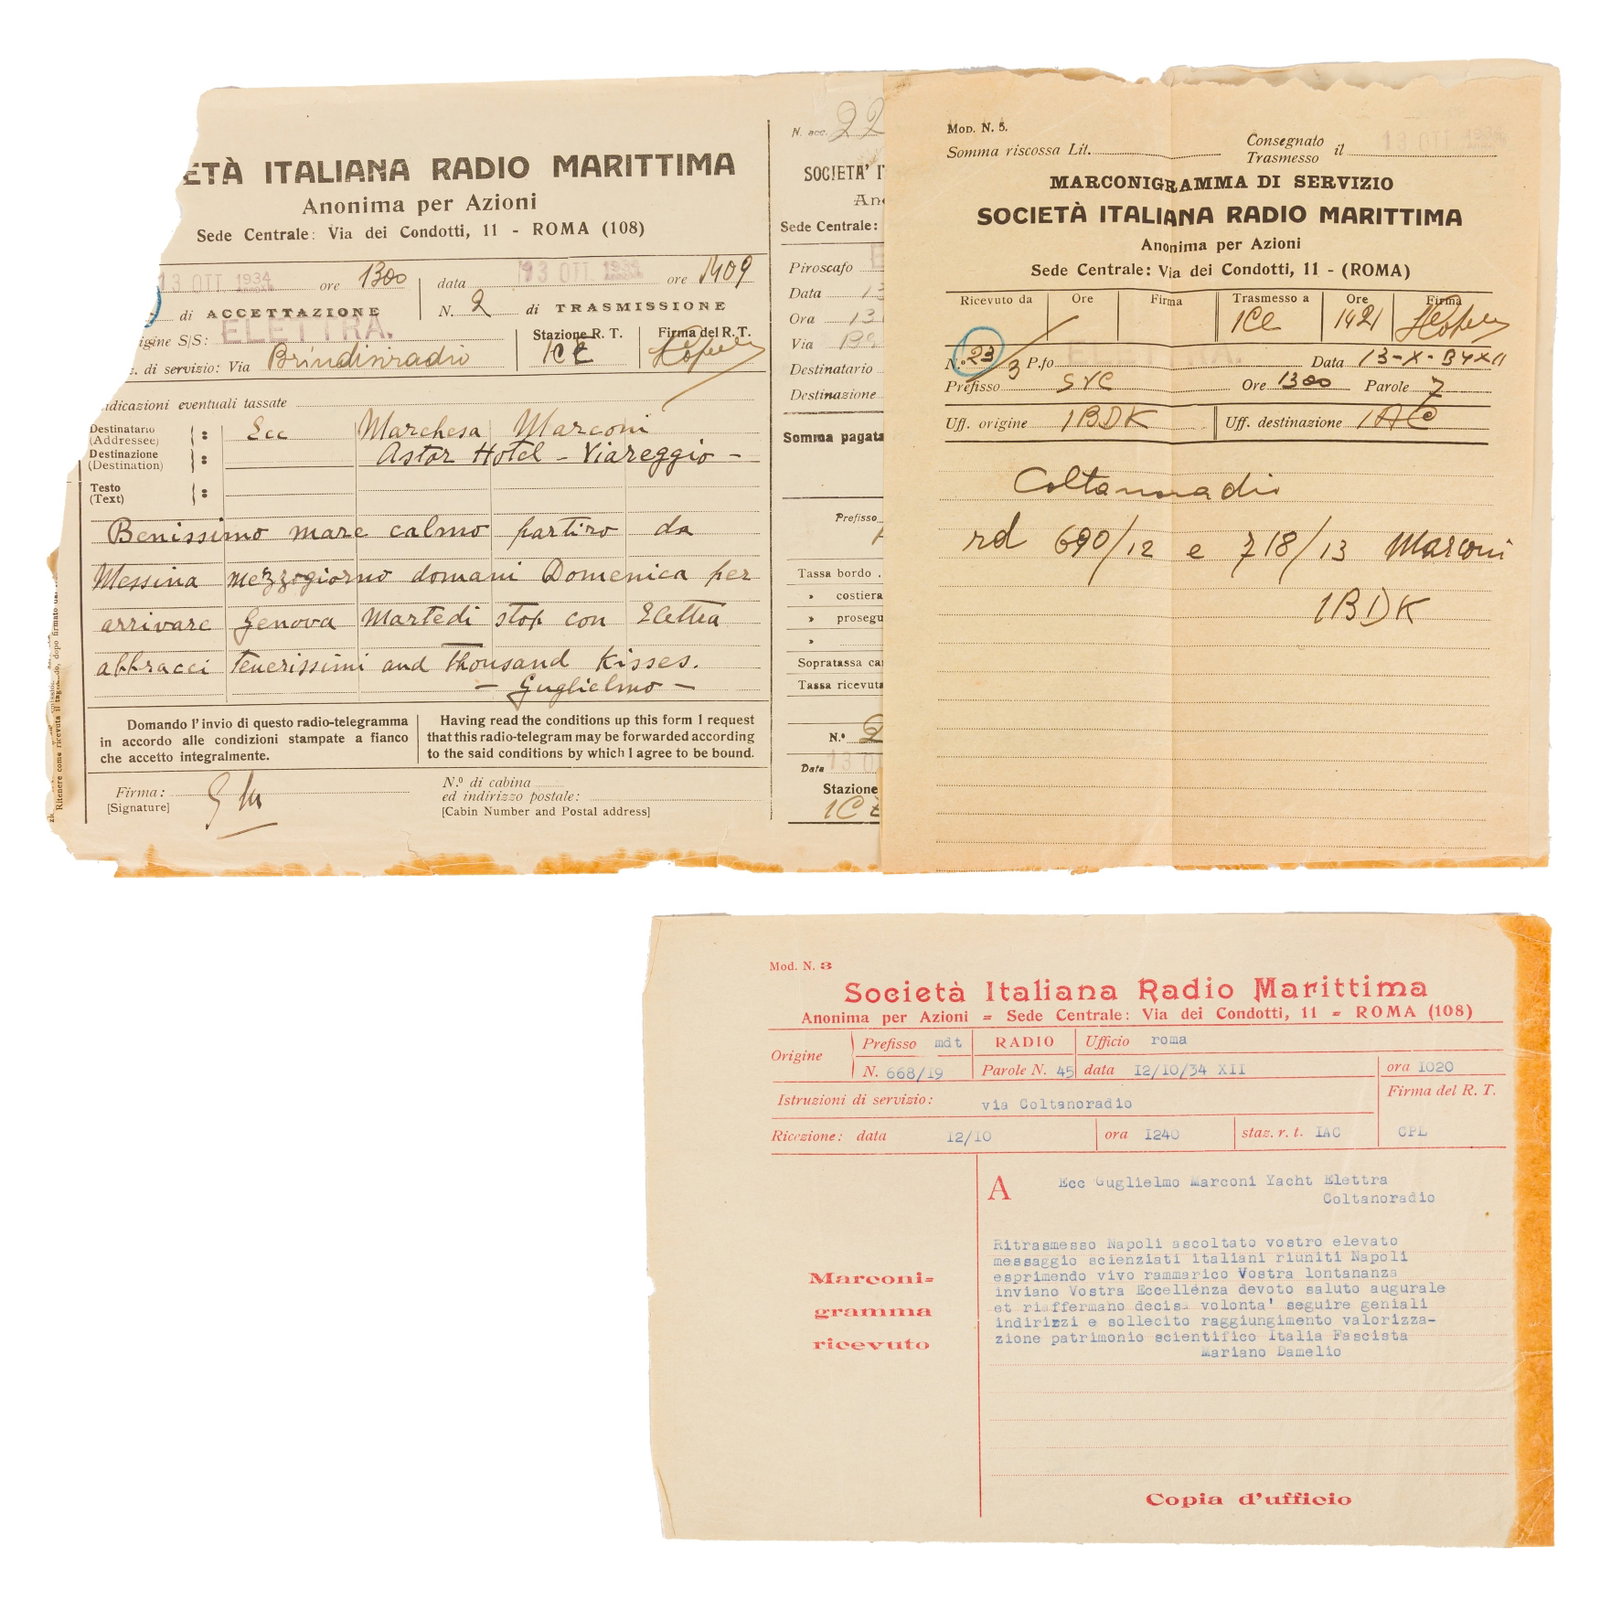 ETÀ ITALIANA RADIO MARITTIMA
Anonima per Azioni
Sede Centrale: Via dei Condotti, 11 - ROMA (108)
13 OTT. 1934 ore 1300 data 13 OTT. 1934 ore 1409
di ACCETTAZIONE N. 2 di TRASMISSIONE
igine S/S: ELETTRA. Stazione R. T. Firma del R. T.
. di servizio: Via Brindisiradio ICE
dicazioni eventuali tassate
Destinatario (Addressee) : Ecc Marchesa Marconi
Destinazione (Destination) : Astor Hotel - Viareggio -
Testo (Text) :
Benissimo mare calmo partiro da
Messina mezzogiorno domani Domenica per
arrivare Genova Martedi stop con Elettra
abbracci tenerissimi and thousand kisses.
- Guglielmo -
Domando l'invio di questo radio-telegramma
in accordo alle condizioni stampate a fianco
che accetto integralmente.
Having read the conditions up this form I request
that this radio-telegram may be forwarded according
to the said conditions by which I agree to be bound.
Firma: G M
[Signature]
N.º di cabina
ed indirizzo postale:
[Cabin Number and Postal address]
Ritenere come ricevuta il tagliando, dopo firmato da
N. acc. 22
SOCIETA' I
An
Sede Centrale:
Piroscafo
Data 13
Ora 13
Via
Destinatario
Destinazione
Somma pagata
Prefisso
Tassa bordo .
» costiera
» prosegu
»
Sopratassa ca
Tassa ricevuta
N.º 2
Data 13 O
Stazione
ICE
Mod. N. 5.
Somma riscossa Lit. Consegnato
Trasmesso il 13 OTT. 1934
MARCONIGRAMMA DI SERVIZIO
SOCIETÀ ITALIANA RADIO MARITTIMA
Anonima per Azioni
Sede Centrale: Via dei Condotti, 11 - (ROMA)
Ricevuto da Ore Firma Trasmesso a Ore Firma
ICE 1421
N.º 23/3 P.fo ELETTRA. Data 13-X-34 XII
Prefisso SVC Ore 1300 Parole 7
Uff. origine IBDK Uff. destinazione IAC
Coltanoradio
rd 690/12 e 718/13 Marconi
IBDK
Mod. N. 3
Società Italiana Radio Marittima
Anonima per Azioni = Sede Centrale: Via dei Condotti, 11 = ROMA (108)
Origine Prefisso mdt RADIO Ufficio roma
N. 668/19 Parole N. 45 data I2/I0/34 XII ora I020
Istruzioni di servizio: via Coltanoradio Firma del R. T.
Ricezione: data I2/I0 ora I240 staz. r. t. IAC CPL
A Ecc Guglielmo Marconi Yacht Elettra
Coltanoradio
Marconi=
gramma
ricevuto
Ritrasmesso Napoli ascoltato vostro elevato
messaggio scienziati italiani riuniti Napoli
esprimendo vivo rammarico Vostra lontananza
inviano Vostra Eccellenza devoto saluto augurale
et riaffermano decisa volonta' seguire geniali
indirizzi e sollecito raggiungimento valorizza-
zione patrimonio scientifico Italia Fascista
Mariano Damelio
Copia d'ufficio